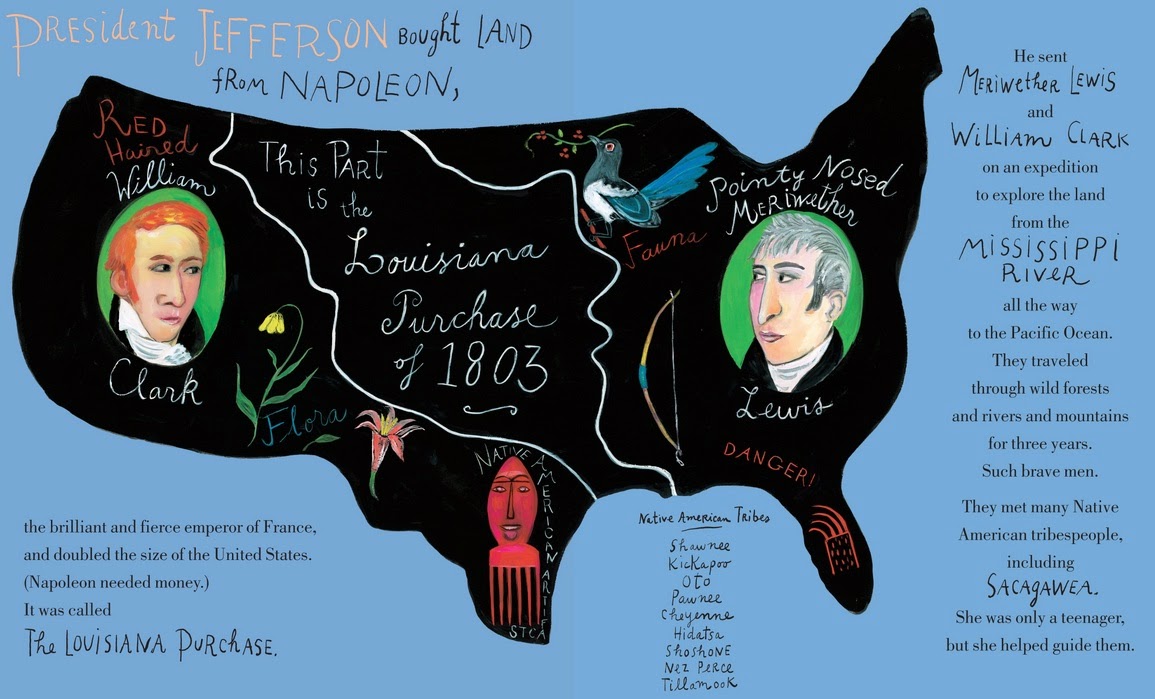 PRESident JEFFERSON Bought LAND
fRom NAPOLEON,
the brilliant and fierce emperor of France,
and doubled the size of the United States.
(Napoleon needed money.)
It was called
The LOUISIANA PURCHASE.
RED
Haired
William
Clark
This PART
is the
Louisiana
Purchase
of 1803
Flora
Fauna
Pointy Nosed
Meriwether
Lewis
DANGER!
NATIVE AMERICAN ARTIF
STCA
Native American Tribes
Shawnee
Kickapoo
Oto
Pawnee
Cheyenne
Hidatsa
Shoshone
Nez Perce
Tillamook
He sent
MERIWETHER LEWIS
and
WILLIAM CLARK
on an expedition
to explore the land
from the
MISSISSIPPI
RIVER
all the way
to the Pacific Ocean.
They traveled
through wild forests
and rivers and mountains
for three years.
Such brave men.
They met many Native
American tribespeople,
including
SACAGAWEA.
She was only a teenager,
but she helped guide them.